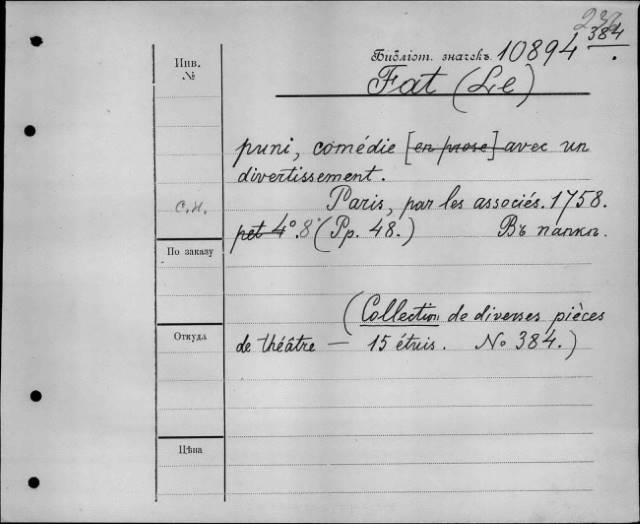 384
Библіот. значекъ 10894
Инв. №
Fat (Le)
puni, comédie [en prose] avec un
divertissement.
Paris, par les associés. 1758.
С.Н.
pet 4º. 8º (Pp. 48.) Въ папкѣ.
По заказу
(Collection de diverses pièces
Откуда
de théâtre — 15 étuis. No 384.)
Цѣна